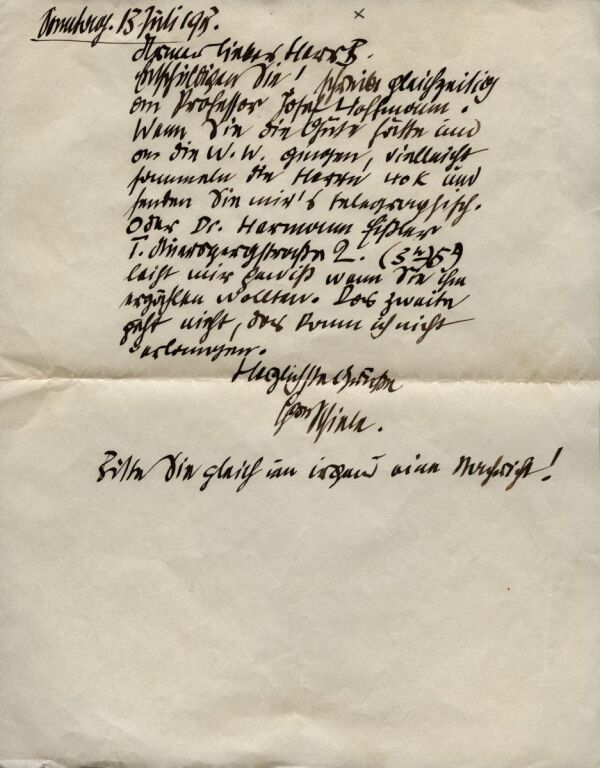 Sonntag. 13 Juli 1913.
Armer lieber Herr B.
Entschuldigen Sie! schreibe gleichzeitig
an Professor Josef Hoffmann.
Wenn Sie die Güte hätten und
an die W. W. gingen, vielleicht
sammeln die Herrn 40 K und
senden Sie mir's telegraphisch.
Oder Dr. Hermann Eißler
I. Auerspergstraße 2.
leiht mir gewiß wenn Sie ihm
erzählen wollten. Das zweite
geht nicht, das kann ich nicht
verlangen.
Herzlichste Grüße
Egon Schiele.
Bitte Sie gleich um irgend eine Nachricht!